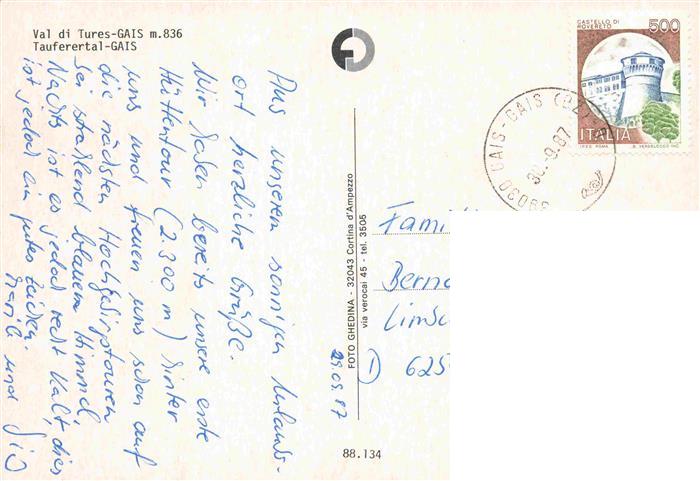 Val di Tures-GAIS m.836
Tauferertal-GAIS
Aus unserem sonnigen Urlaubs-
ort herzliche Grüße.
Wir haben bereits unsere erste
Hüttentour (2.300 m) hinter
uns und freuen uns schon auf
die nächsten Hochgebirgstouren
bei strahlend blauem Himmel.
Nachts ist es jedoch recht kalt, dies
ist jedoch ein gutes Zeichen.
und
29.09.87
FOTO GHEDINA - 32043 Cortina d'Ampezzo
via verocai 45 - tel. 3505
88.134
CASTELLO DI
ROVERETO
500
ITALIA
39030 GAIS-GAIS (BZ)
30.-9.87
Fami
Bern
Lims
D 625